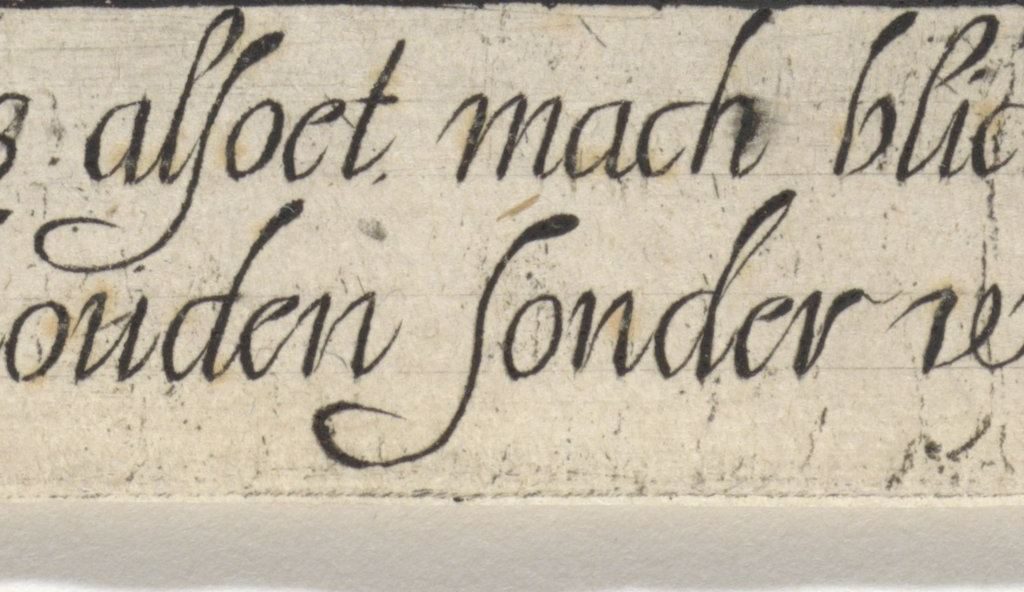 alsoet. mach blic
ouden sonder